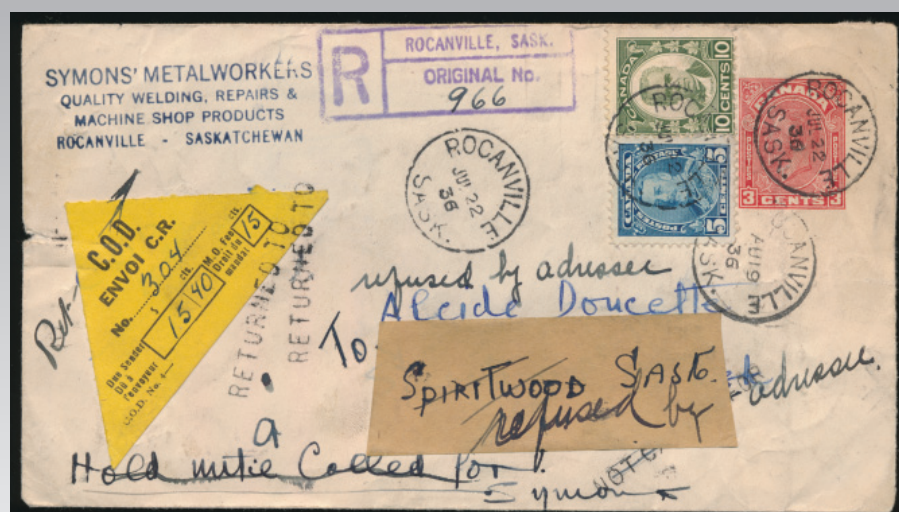 SYMONS' METALWORKERS
QUALITY WELDING, REPAIRS &
MACHINE SHOP PRODUCTS
ROCANVILLE - SASKATCHEWAN
R
ROCANVILLE, SASK.
ORIGINAL No.
966
CANADA
10 CENTS 10
CANADA
POSTES POSTAGE
5 CENTS 5
CANADA
3 CENTS 3
ROCANVILLE
JUL 22
36
SASK.
ROCANVILLE
JUL 22
36
SASK.
ROCANVILLE
AU 19
36
SASK.
C.O.D.
ENVOI C.R.
No. 304
$ cts. M.O. Fee cts.
Droit du mandat
15 40 15
Due Sender
Dû à l'envoyeur
C.O.D. No. 4
RETURNED TO
RETURNED TO
Ret
refused by adressee
Alcide Doucette
To
SPIRITWOOD SASK.
refused by adressee.
a
Hold untie Called for!
Symons